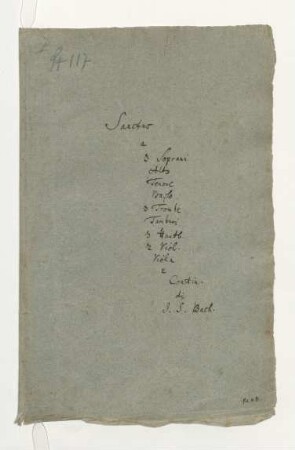 117
Sanctus
a
3 Soprani
Alto
Tenore
Basso
3 Tromb
Tamburi
3 Hautb.
2 Viol.
Viola
e
Contin.
di
J. S. Bach.